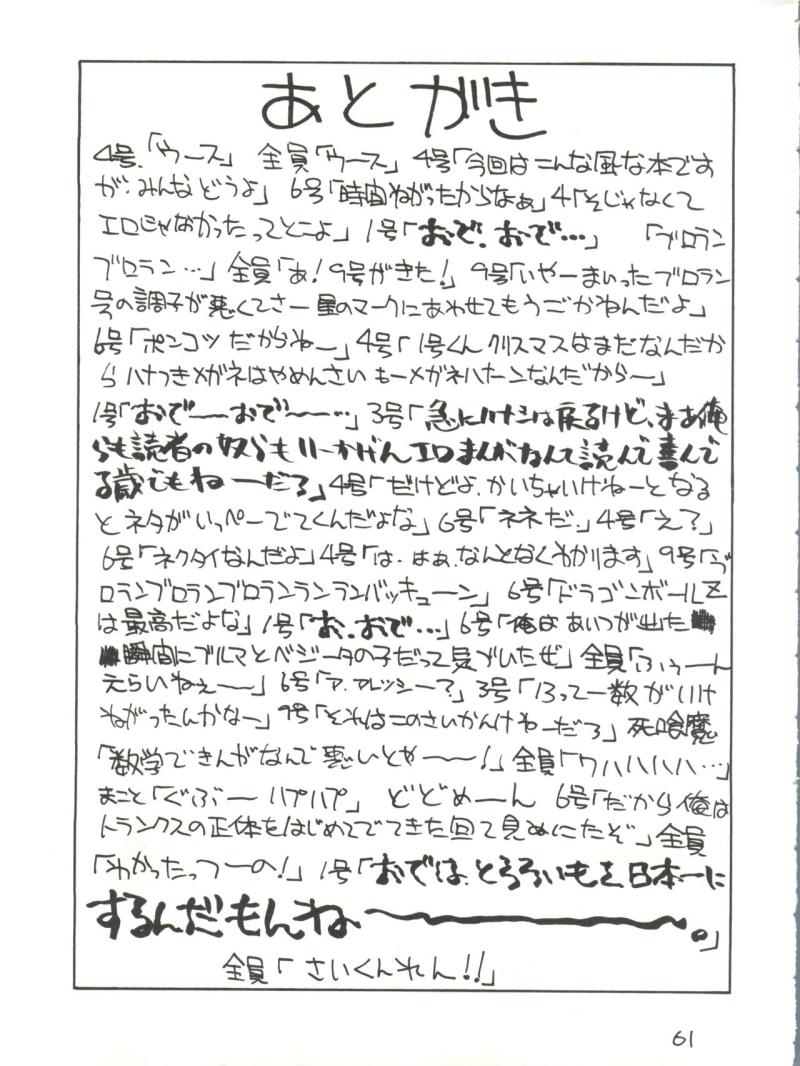 あとがき
4号.「ウース」 全員「ウース」 4号「今回はこんな風な本です
が.みんなどうよ」 6号「時間ねがったからなぁ」4「そじゃなくて
エロじゃなかったってとこよ」 1号「おで.おで…」 「ブロラン
ブロラン…」 全員「あ!9号がきた!」 9号「いやーまいったブロラン
号の調子が悪くてさー 星のマークにあわせてもうごかねんだよ」
6号「ポンコツだからねー」 4号「1号くん クリスマスはまだなんだか
らハナつきメガネはやめんさい もーメガネハナーンなんだから〜」
1号「おで〜おで〜…」 3号「急にハナシは戻るけど、まあ俺
らも読者の奴らもいーかげんエロまんがなんて読んで喜んで
る歳でもねーだろ」 4号「だけどよ.かいちゃいけねーとなる
とネタがいっぺーでてくんだよな」 6号「ネネだ.」 4号「え?」
6号「ネクタイなんだよ」 4号「は.はぁ.なんとなくわかります」 9号「ブ
ロランブロランブロランランランバッキューン」 6号「ドラゴンボールZ
は最高だよな」 1号「お.おで…」 6号「俺はあいつが出た
瞬間にブルマとベジータの子だって気づいたぜ」 全員「ふぅーん
えらいねぇ〜」 6号「ア.アレッシー?」 3号「13って一数がいけ
ねがったんかなー」 9号「それはこのさいかんけねーだろ」 死喰魔
「数学できんがなんで悪いとや〜!」 全員「ワハハハハ…」
まこと「ぐぶー ハプハプ」 どどめ〜ん 6号「だから俺は
トランクスの正体をはじめてでてきた回で見ぬいたぞ」 全員
「わかったっつーの!」 1号「おでは.とろろいもを.日本一に
するんだもんね〜。」
全員「さいくんれん!!」
61